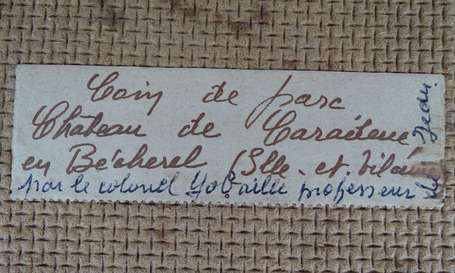 Coin de parc
Château de Caradeuc
en Bécherel (Ille-et-Vilaine
par le colonel professeur
de